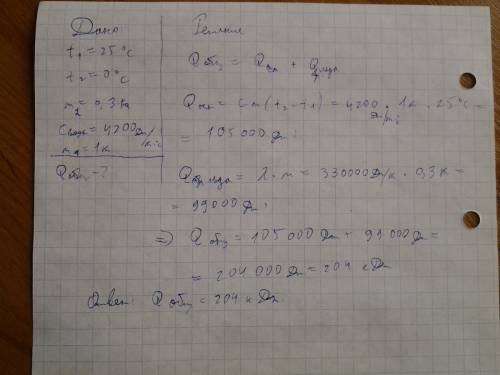 Дано
t₁ = 25 °C
t₂ = 0 °C
m₂ = 0,3 кг
Cводы = 4200 Дж/кг·°C
m₁ = 1 к
Qобщ - ?
Решение
Qобщ = Q + Q льда
Q = cm(t₂ - t₁) = 4200 · 1к · 25 °C =
= 105 000 Дж;
Q льда = λ · m = 330000 Дж/к · 0,3 к =
= 99000 Дж;
=> Qобщ = 105 000 Дж + 99 000 Дж =
= 204 000 Дж = 204 кДж
Ответ: Qобщ = 204 кДж